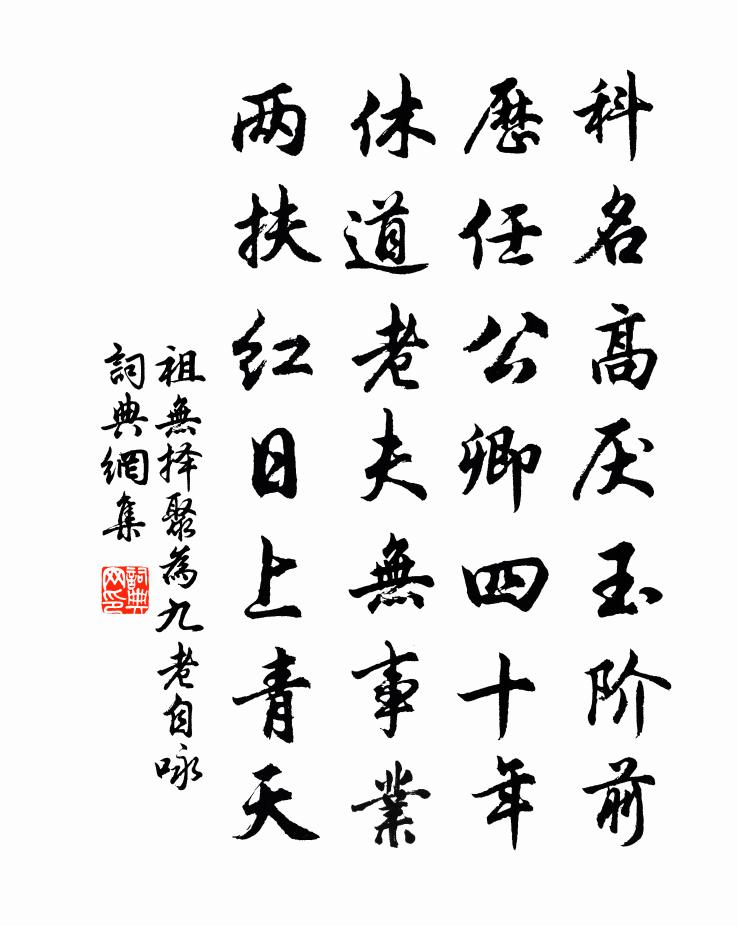 科名高厌玉阶前
歷任公卿四十年
休道老夫無事業
两扶红日上青天
祖無择聚為九老自咏
詞典網集
詞典
网印